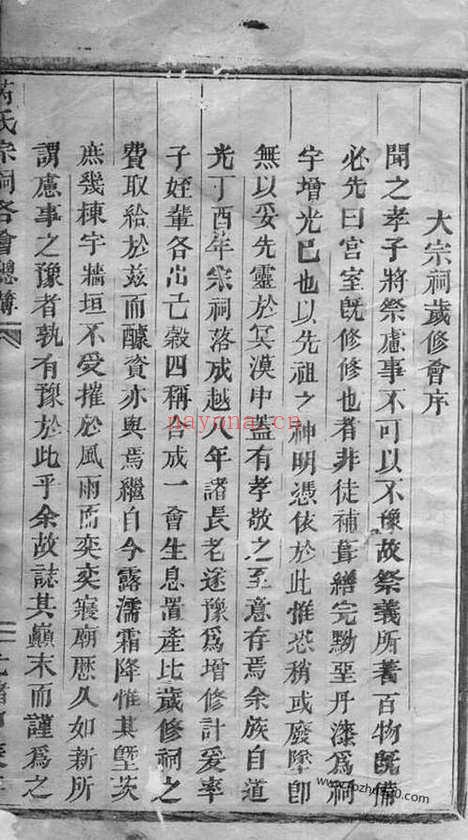 大宗祠歲修會序
聞之孝子將祭慮事不可以不豫故祭義所著百物旣備
必先曰宮室旣修修也者非徒補葺繕完黝堊丹漆為祠
宇增光已也以先祖之神明憑依於此惟恐稍或廢墜卽
無以妥先靈於冥漠中葢有孝敬之至意存焉余族自道
光丁酉年宗祠落成越八年諸長老遂豫為增修計爰率
子姪輩各出己穀四稱合成一會生息置產比歲修祠之
費取給於兹而醵資亦與焉繼自今露濡霜降惟其墍茨
庶幾棟宇牆垣不受摧於風雨而奕奕寢廟歷久如新所
謂慮事之豫者孰有豫於此乎余故誌其巔末而謹為之
氏宗祠各會總簿
nayona.cn
www.fozhu920.com